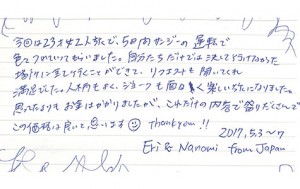 今回は23才女2人旅で、5日間サンジーの運転で
色々つれていってもらいました。自分たちだけでは決して行けなかった
場所に、連れて行くことができて、リクエストも聞いてくれ
満足でした。人柄もよく、ジョークも面白く楽しい旅になりました。
思ったよりもお金はかかりましたが、これだけの内容で盛りだくさんで
この価格は良いと思います☺ Thank you!!
2017.5.3~7
Eri & Nanomi from Japan